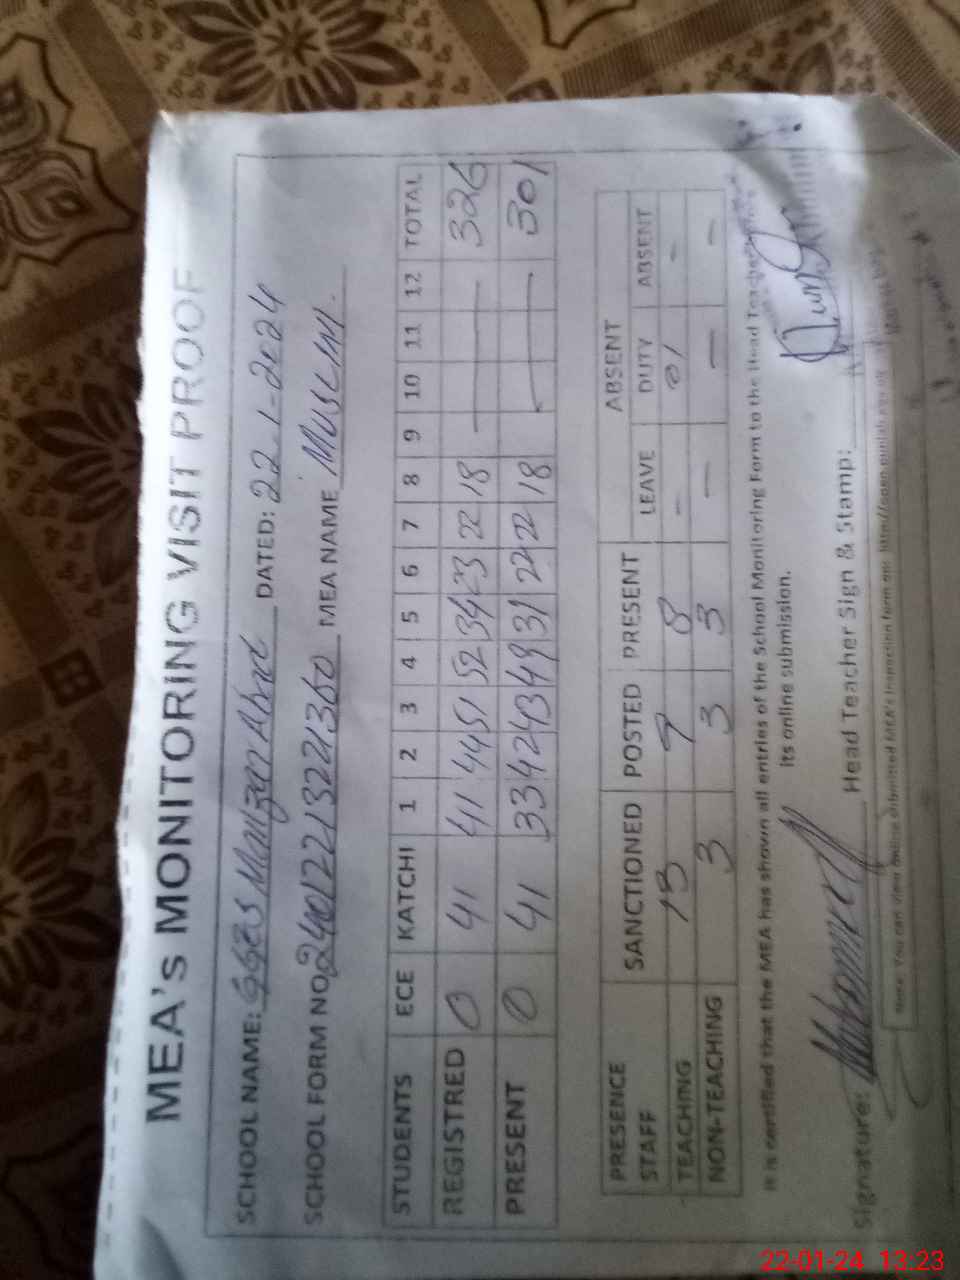 MEA's MONITORING VISIT PROOF
SCHOOL NAME: GGES Manzar Abad DATED: 22-1-2024
SCHOOL FORM NO 2401221321360 MEA NAME Muslim.
STUDENTS ECE KATCHI 1 2 3 4 5 6 7 8 9 10 11 12 TOTAL
REGISTRED 0 41 41 44 51 52 34 23 22 18 — 326
PRESENT 0 41 33 42 43 49 31 22 22 18 — 301
PRESENCE SANCTIONED POSTED PRESENT ABSENT
STAFF LEAVE DUTY ABSENT
TEACHING 13 9 8 - 01 -
NON-TEACHING 3 3 3 - - -
It is certified that the MEA has shown all entries of the School Monitoring Form to the Head Teacher
its online submission.
Signature: Head Teacher Sign & Stamp:
Note: You can view online submitted MEA's inspection form on:
22-01-24 13:23